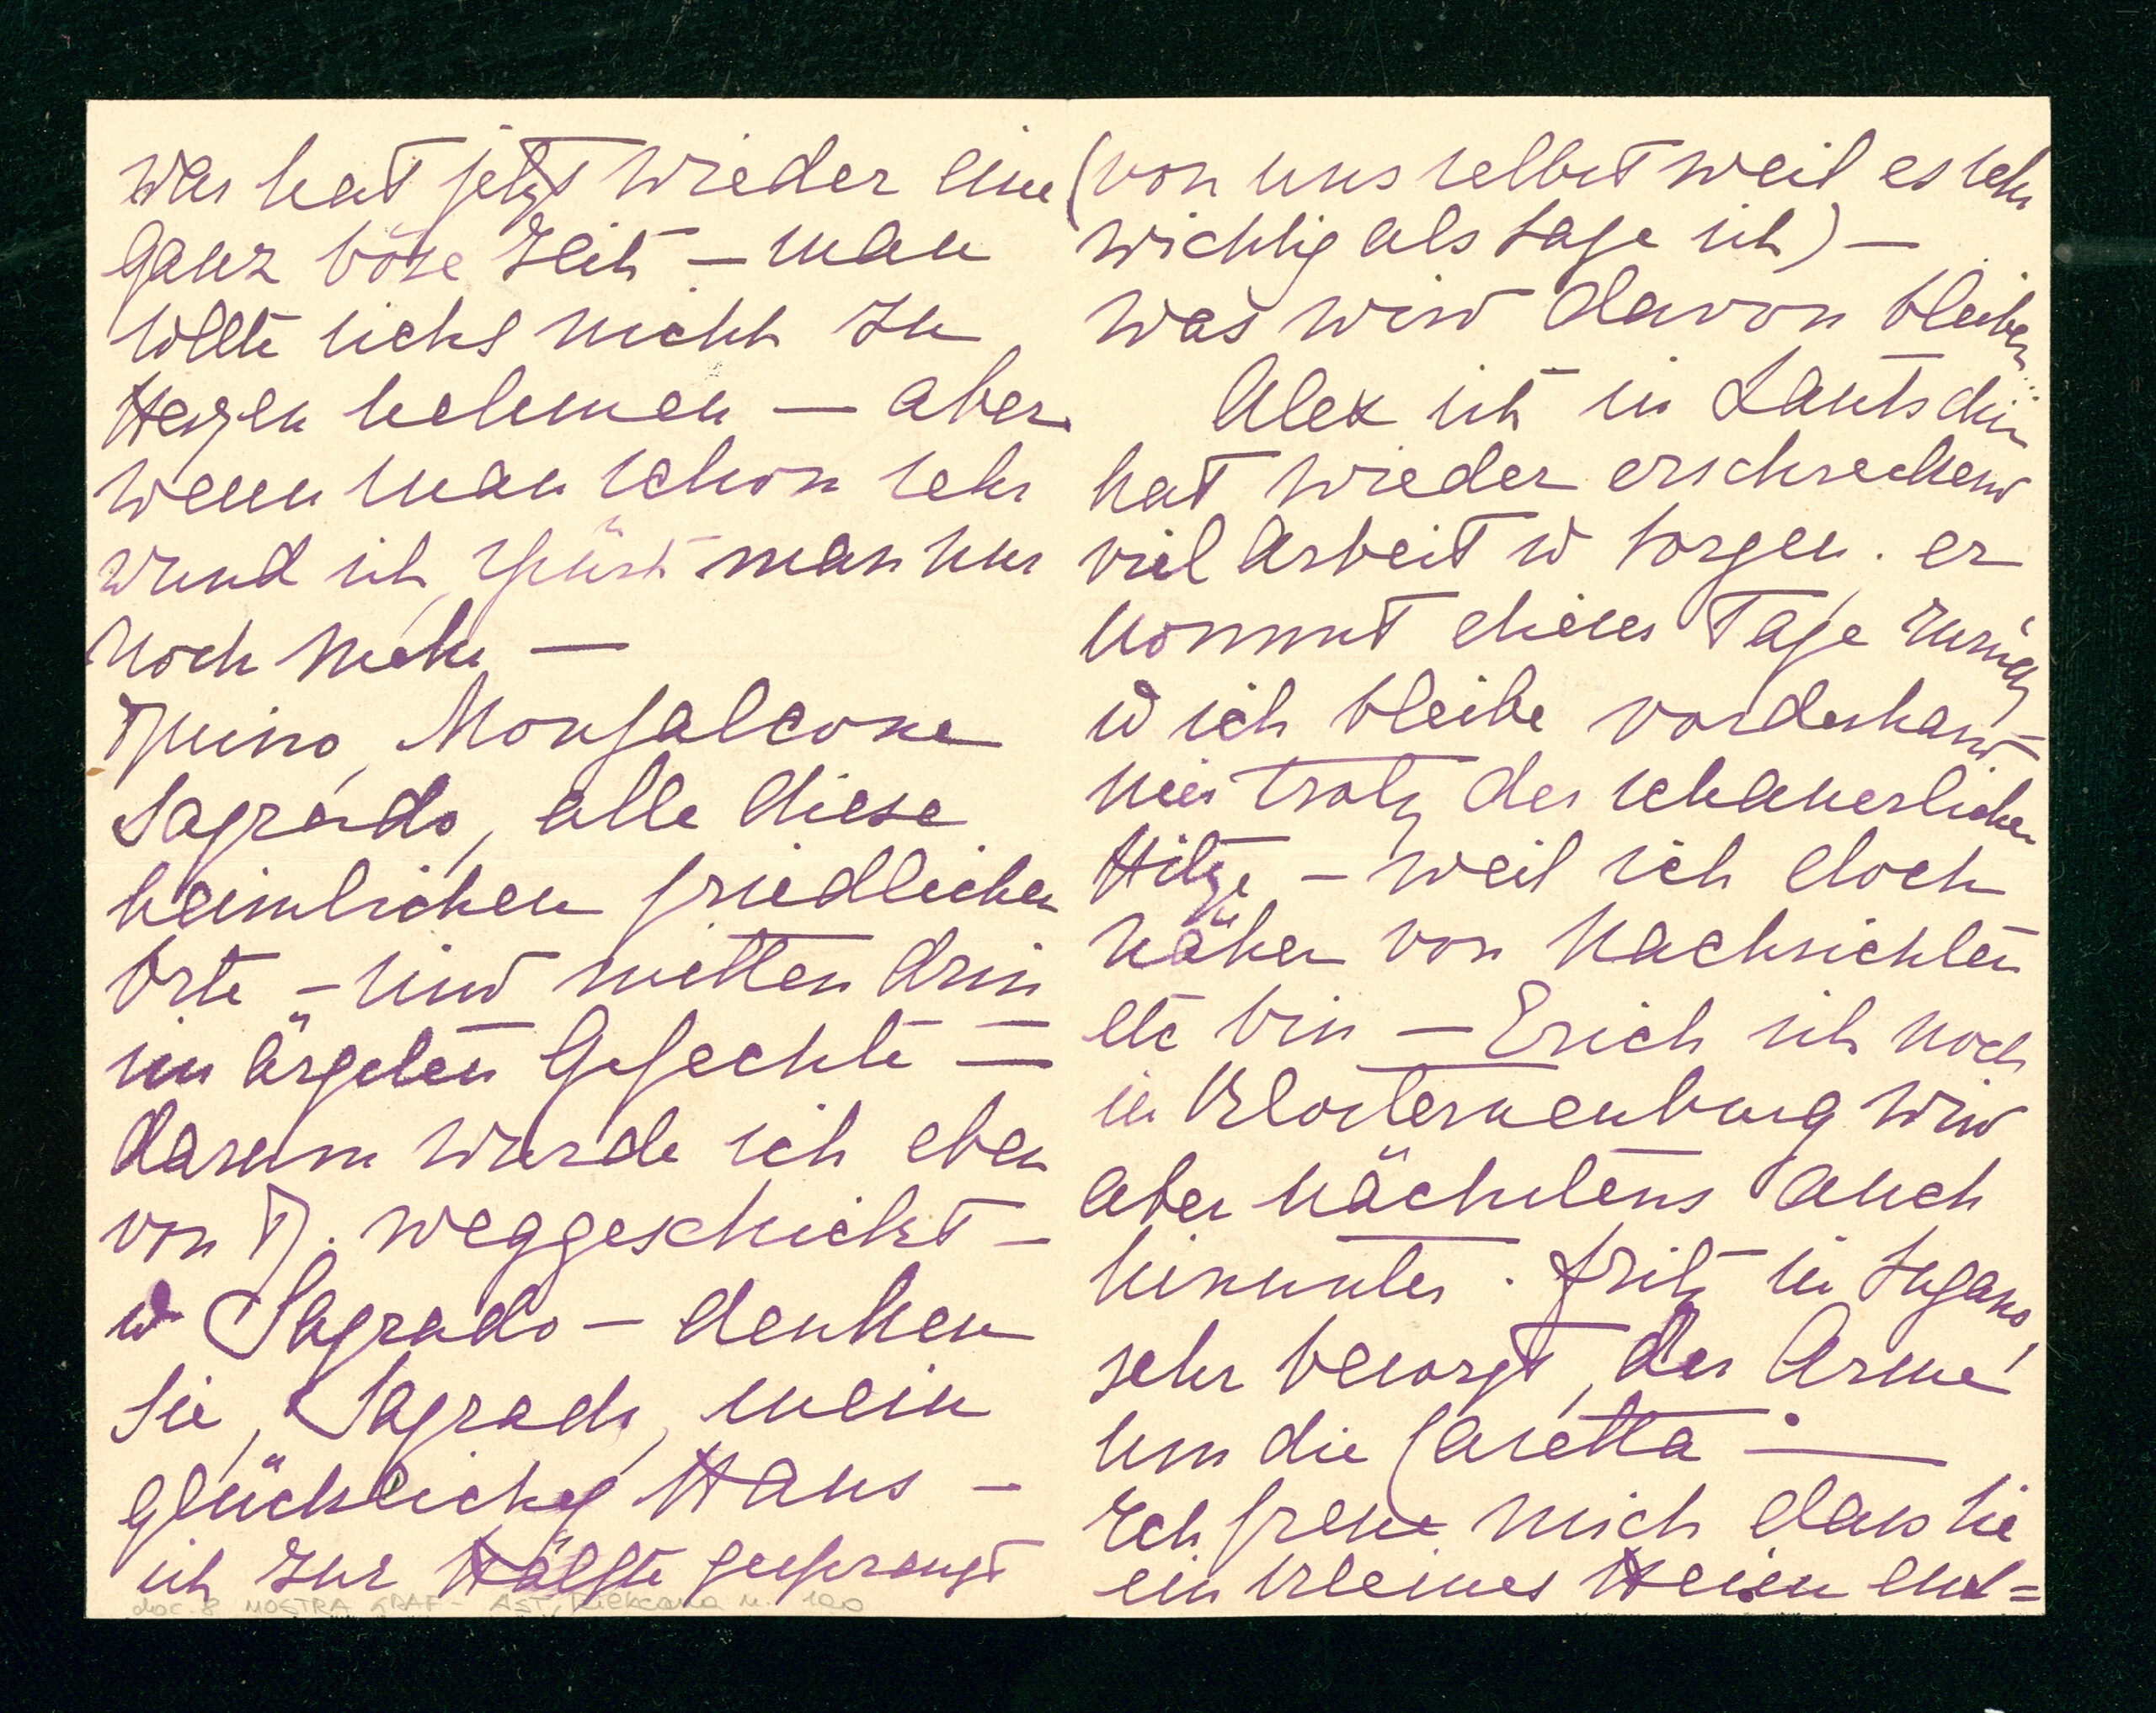 Wer hat jetzt wieder eine
ganz böse Zeit – man
sollte sichs nicht zu
Herzen nehmen – aber
wenn man schon sehr
wund ist spürt man nur
noch mehr –
Duino, Monfalcone
Sagrado, alle diese
heimlichen friedlichen
Orte – sind mitten drin
im ärgsten Gefechte –
darum wurde ich eben
von D. weggeschickt –
u Sagrado – denken
Sie, Sagrado, mein
glückliches Haus –
ist zur Hälfte gesprengt
doc. 8 MOSTRA GRAF – AST, Rilkeana n. 100
(von uns selbst weil es sehr
wichtig als Lage ist) –
was wird davon bleiben...
Alex ist in Lautschin
hat wieder erschreckend
viel Arbeit u Sorgen. er
kommt dieser Tage zurück
u ich bleibe vorderhand
hier trotz der schauerlichen
Hitze – weil ich doch
näher von Nachrichten
etc bin – Erich ist noch
in Klosterneuburg wird
aber nächstens auch
hinunter. Fritz in Lugano,
sehr besorgt, der Arme
um die Casetta –
Ich freue mich dass Sie
ein kleines Heim ent=